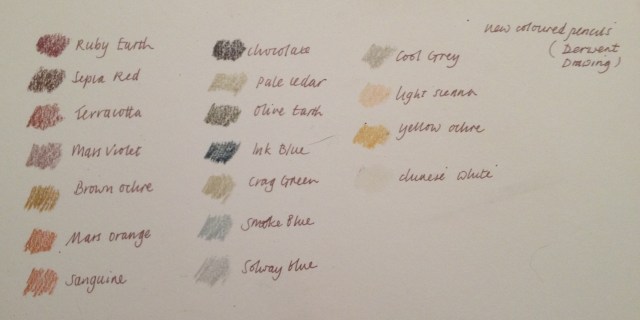 Ruby Earth
Sepia Red
Terracotta
Mars Violet
Brown Ochre
Mars Orange
Sanguine
Chocolate
Pale Cedar
Olive Earth
Ink Blue
Crag Green
Smoke Blue
Solway Blue
Cool Grey
light sienna
yellow ochre
chinese white
new coloured pencils
(Derwent
Drawing)